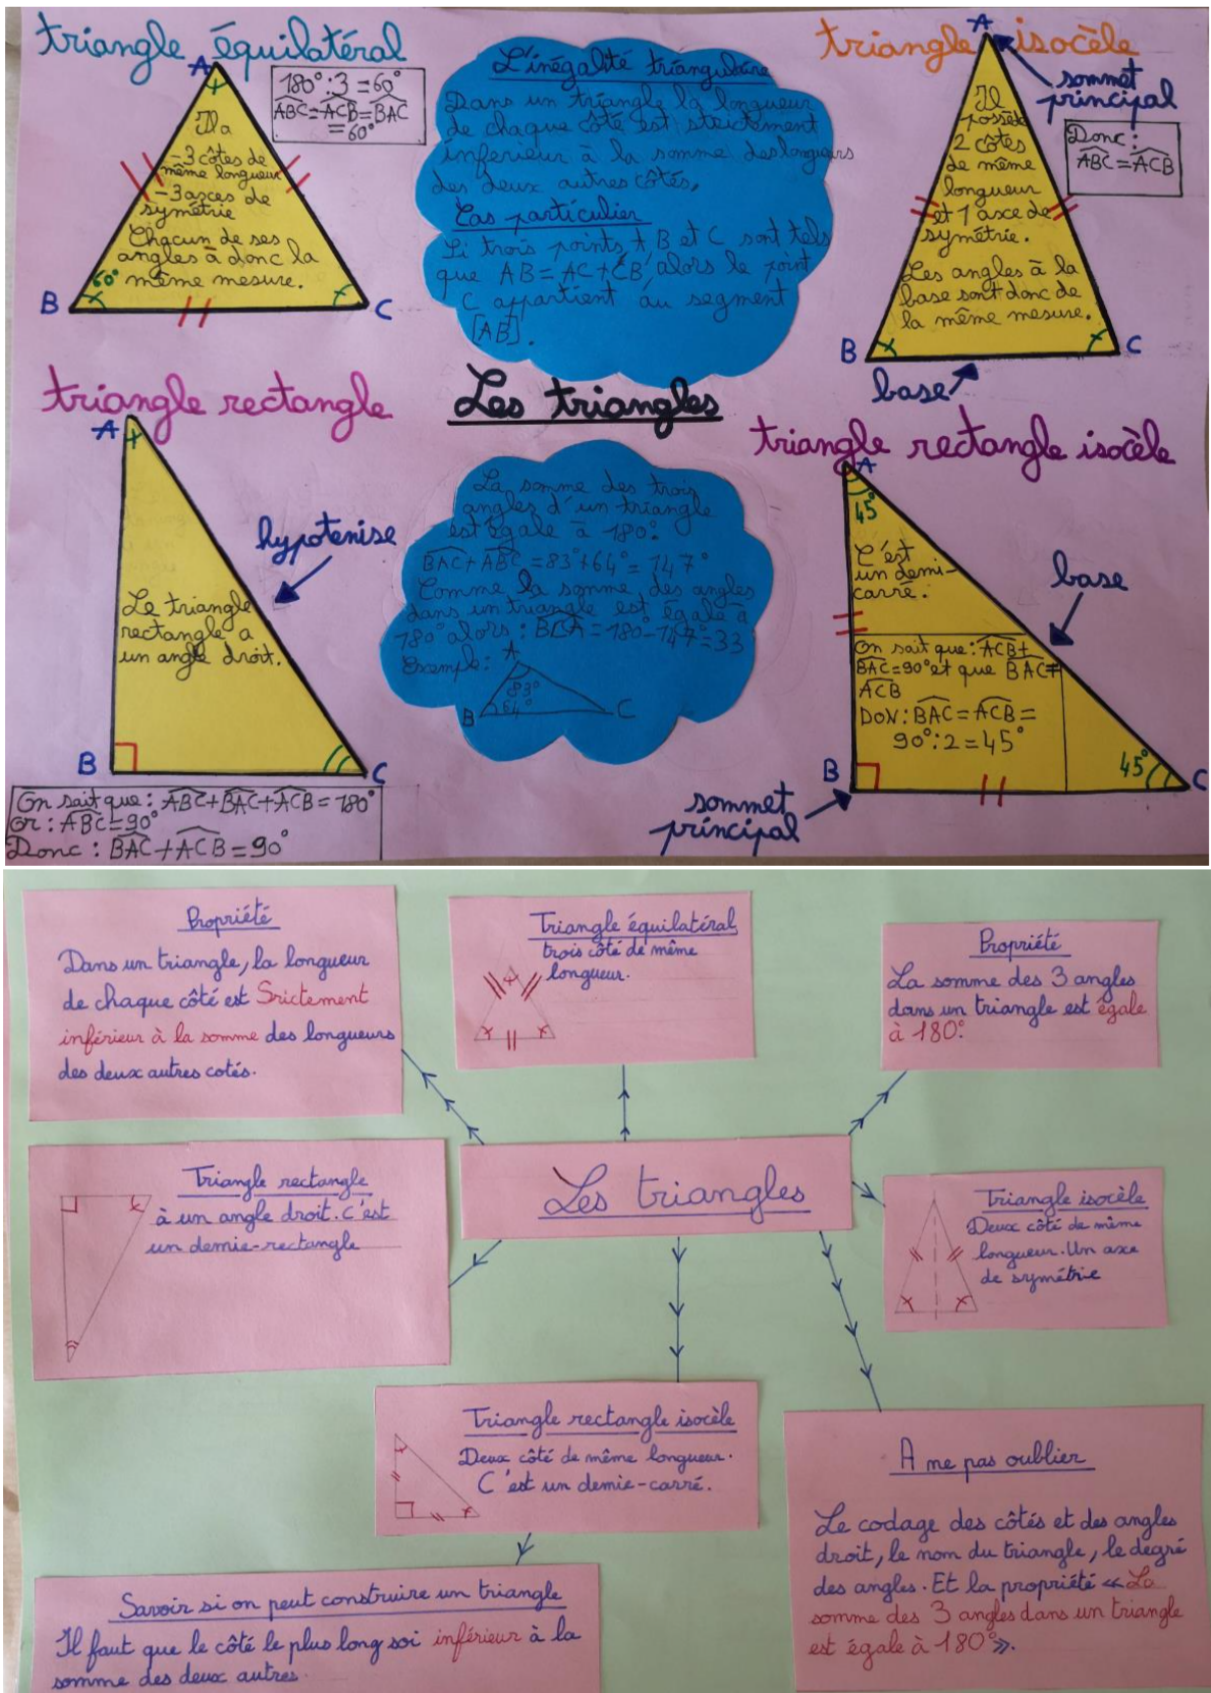 triangle équilatéral
A
180° : 3 = 60°
ABC = ACB = BAC
= 60°
Il a
- 3 côtes de
même longueur
- 3 axces de
symétrie
Chacun de ses
angles à donc la
même mesure.
60°
B
C
L'inégalité triangulaire
Dans un triangle la longueur
de chaque côté est strictement
inferieur à la somme des longueurs
des deux autres côtés.
Cas particulier
Si trois points A B et C sont tels
que AB = AC + CB alors le point
C appartient au segment
[AB].
triangle isocèle
A
sommet
principal
Il
possède
2 côtes
de même
longueur
et 1 axce de
symétrie.
Les angles à la
base sont donc de
la même mesure.
Donc :
ABC = ACB
B
C
base
Les triangles
triangle rectangle
A
hypotenise
Le triangle
rectangle a
un angle droit.
B
C
On sait que : ABC + BAC + ACB = 180°
or : ABC = 90°
Donc : BAC + ACB = 90°
La somme des trois
angles d'un triangle
est égale à 180°
BAC + ABC = 83° + 64° = 147°
Comme la somme des angles
dans un triangle est égale à
180° alors : BCA = 180 - 147° = 33
Exemple :
A
83°
64°
B
C
triangle rectangle isocèle
A
45°
C'est
un demi-
carré.
base
On sait que : ACB +
BAC = 90° et que BAC =
ACB
DON : BAC = ACB =
90° : 2 = 45°
45°
B
C
sommet
principal
Propriété
Dans un triangle, la longueur
de chaque côté est Srictement
inférieur à la somme des longueurs
des deux autres cotés.
Triangle équilatéral
trois côté de même
longueur.
Propriété
La somme des 3 angles
dans un triangle est égale
à 180°.
Triangle rectangle
à un angle droit. C'est
un demie-rectangle
Les triangles
Triangle isocèle
Deux côté de même
longueur. Un axe
de symétrie
Triangle rectangle isocèle
Deux côté de même longueur.
C'est un demie-carré.
A ne pas oublier
Le codage des côtés et des angles
droit, le nom du triangle, le degré
des angles. Et la propriété « La
somme des 3 angles dans un triangle
est égale à 180° ».
Savoir si on peut construire un triangle
Il faut que le côté le plus long soi inférieur à la
somme des deux autres.